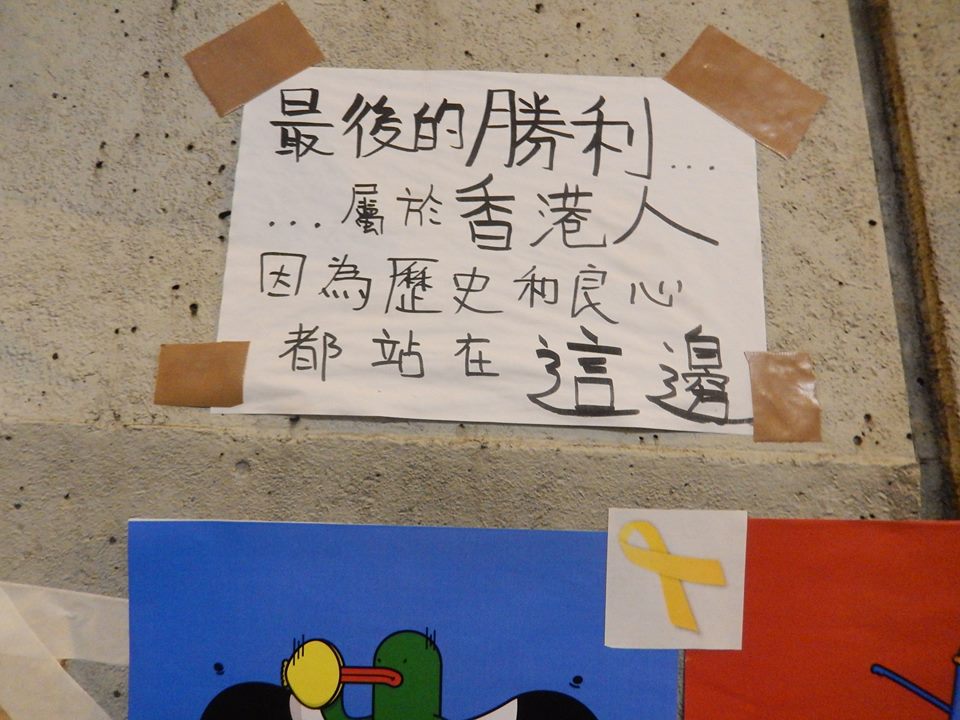 最後的勝利...
...屬於香港人
因為歷史和良心
都站在這邊